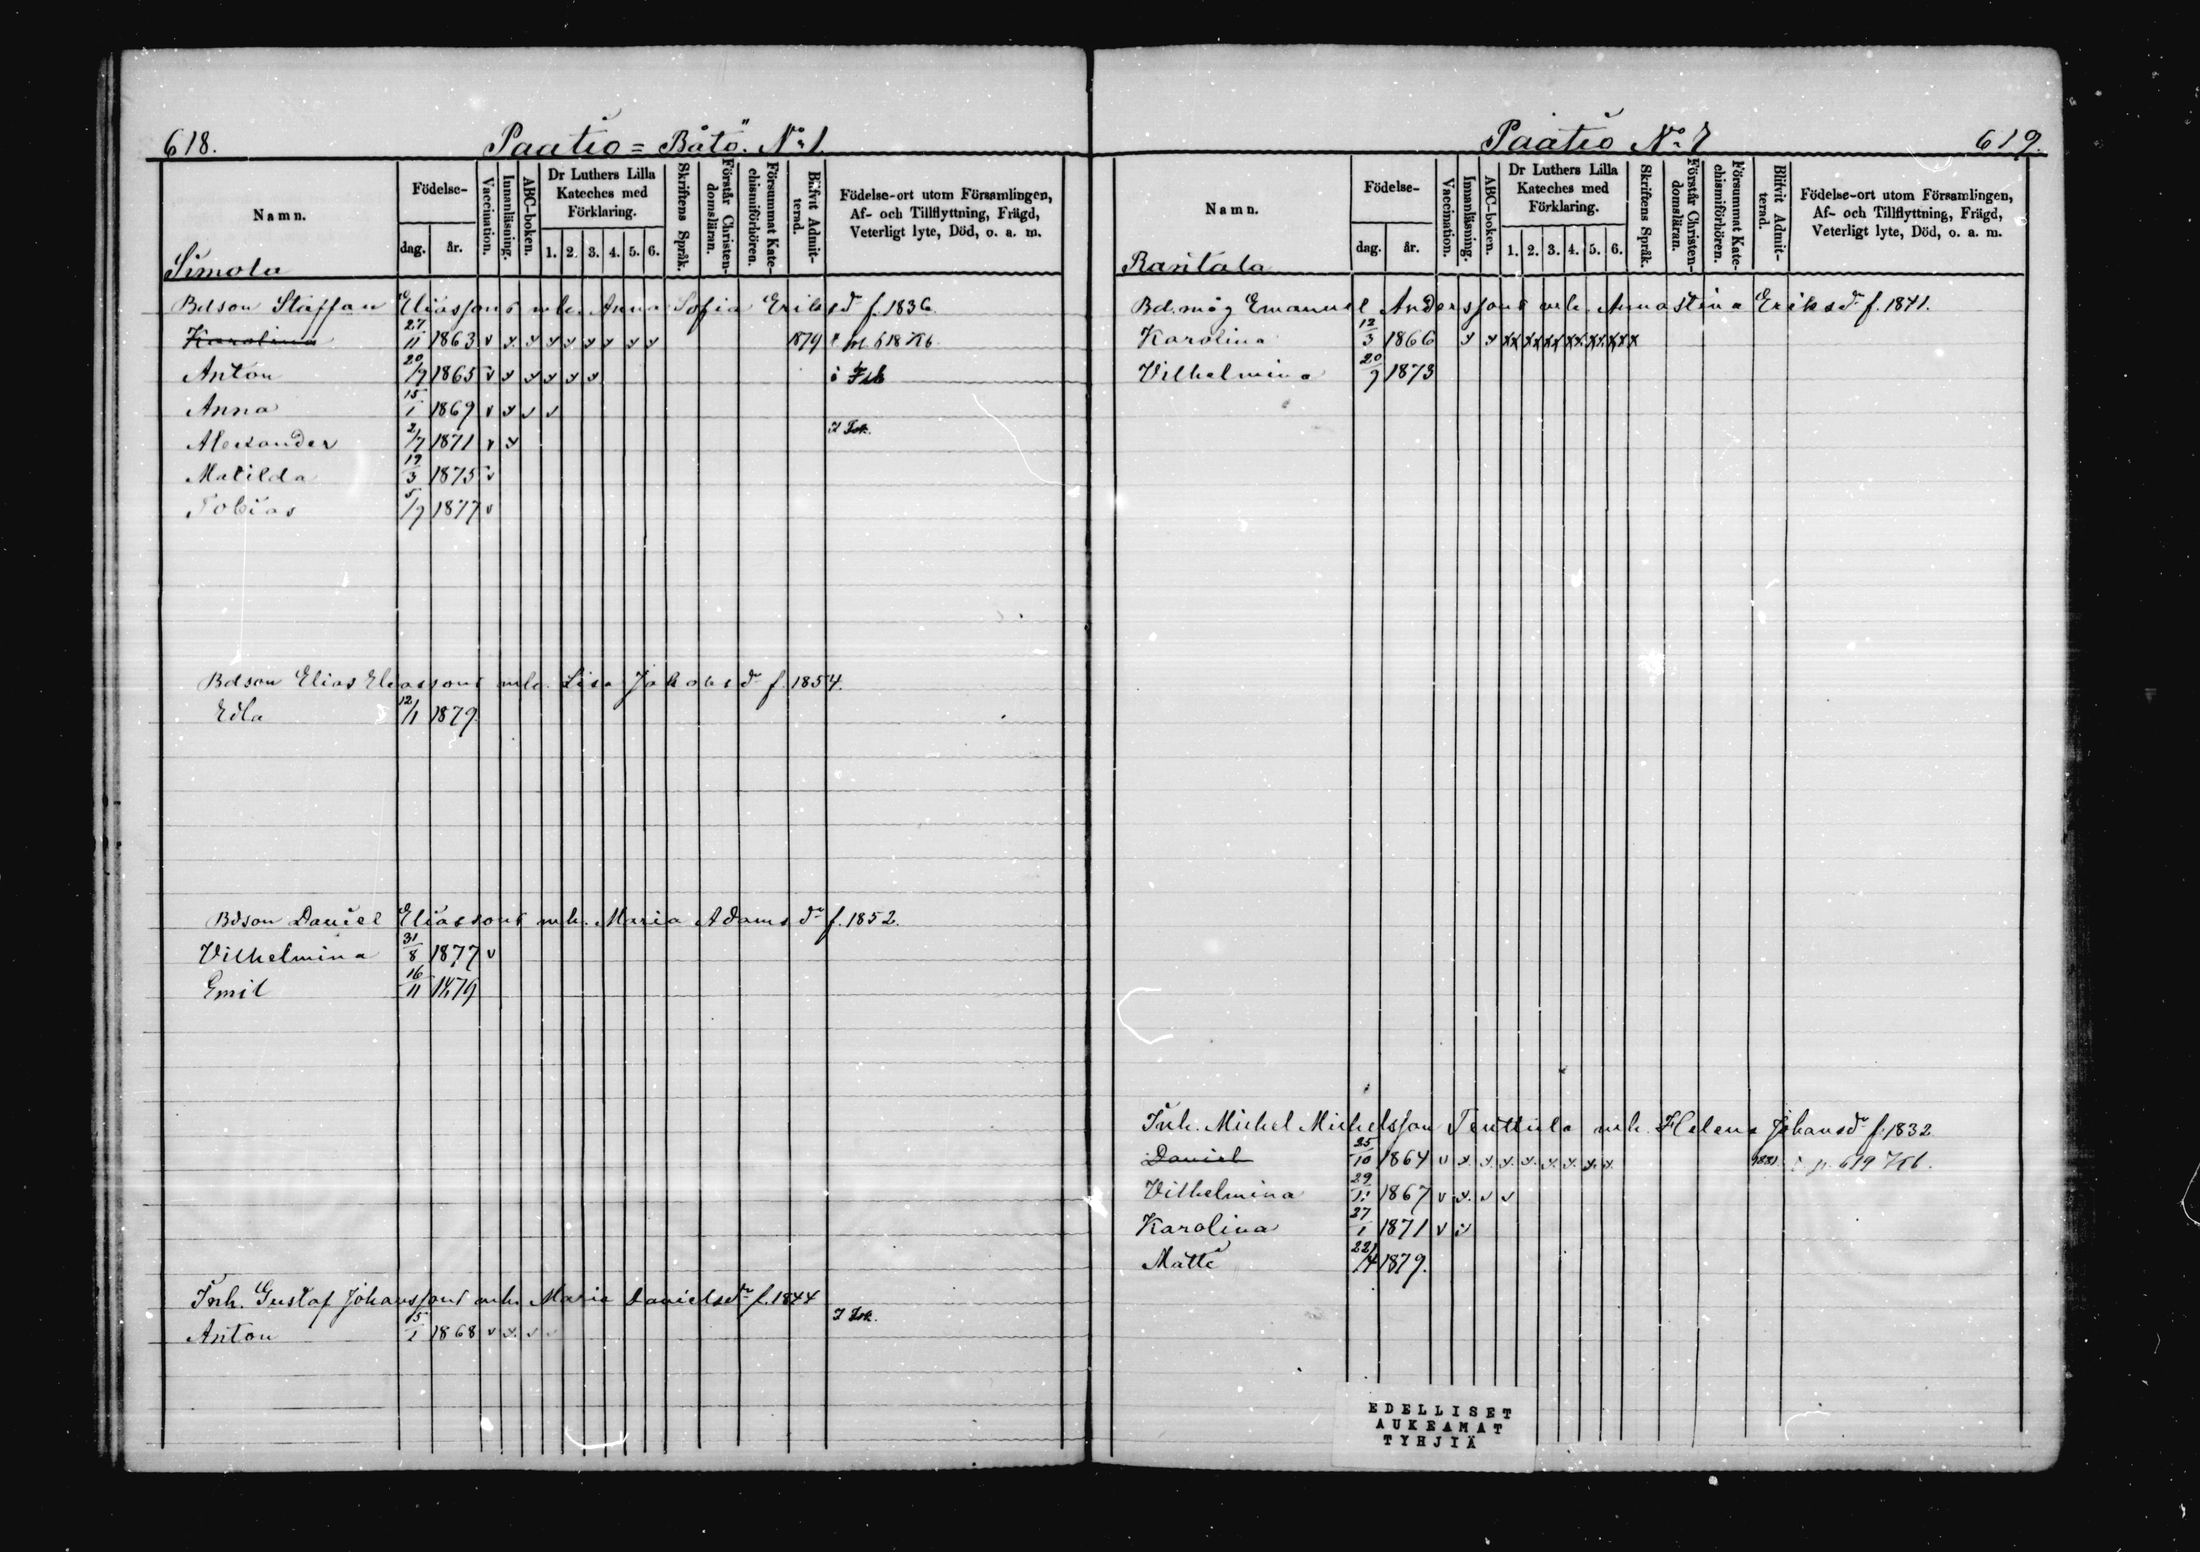 618. Paatio = Båtö. No 1.
Namn. Födelse- dag. år. Vaccination. Innanläsning. ABC-boken. Dr Luthers Lilla Kateches med Förklaring. 1. 2. 3. 4. 5. 6. Skriftens Språk. Förstår Christen-domsläran. Försummat Kate-chismiförhören. Blifvit Admit-terad. Födelse-ort utom Församlingen, Af- och Tillflyttning, Frägd, Veterligt lyte, Död, o. a. m.
Simola
Bdson Staffan Eliassons mh. Anna Sofia Eriksdr f. 1836.
Karolina 27/11 1863 v x x x x x x x x 1879 p. 618 Kb.
Anton 20/7 1865 v x x x x x
Anna 15/1 1869 v x v v
Alexander 2/7 1871 v x
Matilda 19/3 1875 v
Tobias 5/9 1877 v
Bdson Elias Eliassons mh. Lisa Jakobsdr f. 1854.
Edla 12/1 1879.
Bdson Daniel Eliassons mh. Maria Adamsdr f. 1852.
Vilhelmina 31/8 1877 v
Emil 16/11 1879
Inh. Gustaf Johanssons mh. Maria Danielsdr f. 1844
Anton 5/1 1868 v x v v
Paatio No 7 619.
Namn. Födelse- dag. år. Vaccination. Innanläsning. ABC-boken. Dr Luthers Lilla Kateches med Förklaring. 1. 2. 3. 4. 5. 6. Skriftens Språk. Förstår Christen-domsläran. Försummat Kate-chismiförhören. Blifvit Admit-terad. Födelse-ort utom Församlingen, Af- och Tillflyttning, Frägd, Veterligt lyte, Död, o. a. m.
Rantala
Bd.måg Emanuel Anderssons mh. Anna Stina Eriksdr f. 1841.
Karolina 12/3 1866 x x xx xx xx xx xx xx
Vilhelmina 20/9 1873
Inh. Michel Michelsson Tenttula mh. Helena Johansdr f. 1832
Daniel 25/10 1864 v x x x x x x x x 1881 p. 619 Kb.
Vilhelmina 29/11 1867 v x v v
Karolina 27/1 1871 v v
Matte 22/4 1879.
EDELLISET
AUKEAMAT
TYHJIÄ